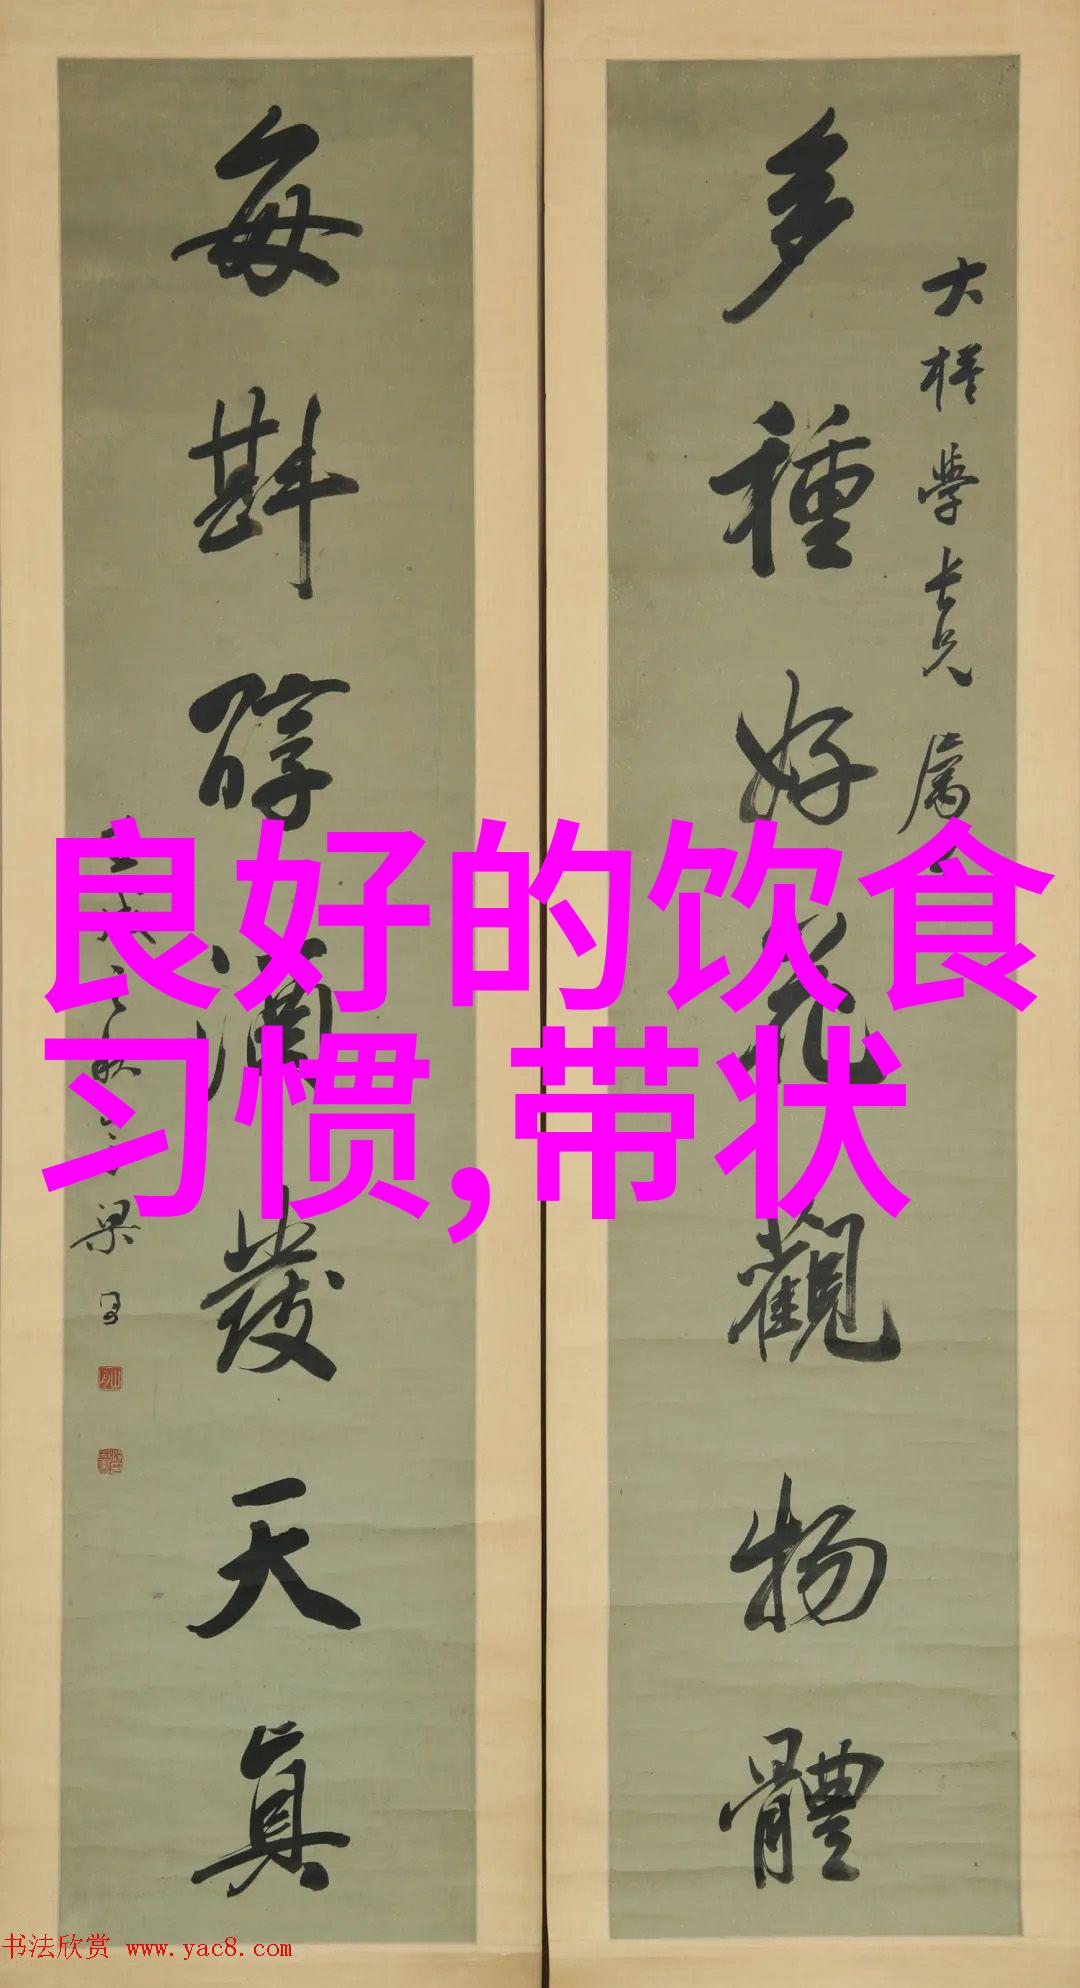 多種好花觀物體
大樑學長兄屬
每斟醇酒發天真
梁同
良好的饮食
习惯,带状
书法欣赏 www.yac8.com